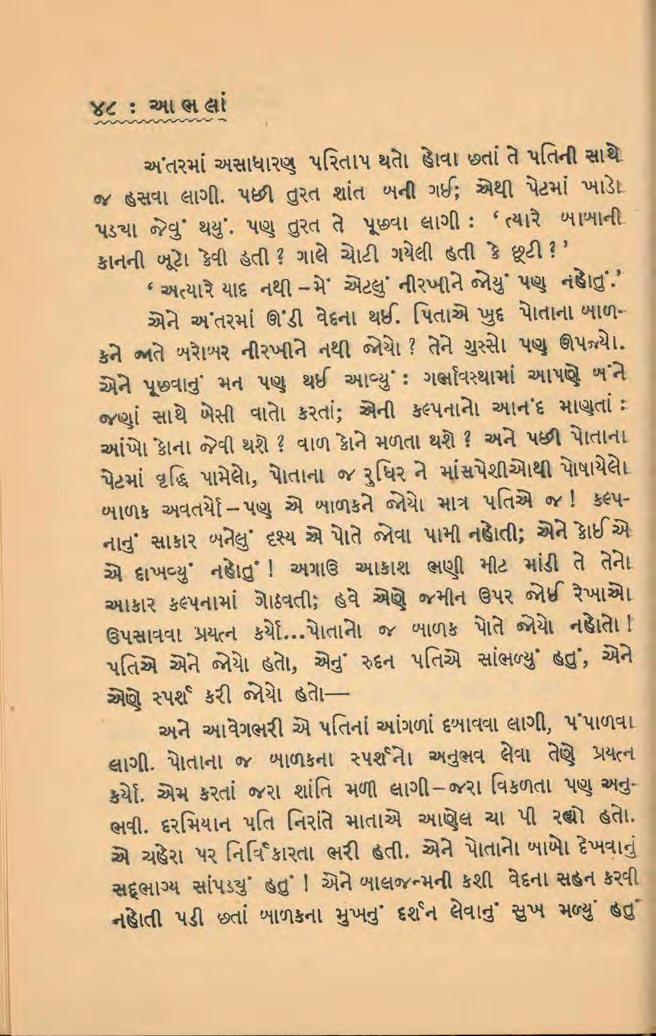 ૪૮ : આભલાં
અંતરમાં અસાધારણ પરિતાપ થતો હોવા છતાં તે પતિની સાથે
જ હસવા લાગી. પછી તુરત શાંત બની ગઈ; એથી પેટમાં ખાડો
પડ્યા જેવું થયું. પણ તુરત તે પૂછવા લાગી : ‘ત્યારે બાબાની
કાનની બૂટો કેવી હતી ? ગાલે ચોટી ગયેલી હતી કે છૂટી ?’
‘અત્યારે યાદ નથી – મેં એટલું નીરખીને જોયું પણ નહોતું.’
એને અંતરમાં ઊંડી વેદના થઈ. પિતાએ ખુદ પોતાના બાળ-
કને જાતે બરોબર નીરખીને નથી જોયો ? તેને ગુસ્સો પણ ઊપજ્યો.
એને પૂછવાનું મન પણ થઈ આવ્યું : ગર્ભાવસ્થામાં આપણે બંને
જણાં સાથે બેસી વાતો કરતાં; એની કલ્પનાનો આનંદ માણતાં :
આંખો કોના જેવી થશે ? વાળ કોને મળતા થશે ? અને પછી પોતાના
પેટમાં વૃદ્ધિ પામેલો, પોતાના જ રુધિર ને માંસપેશીઓથી પોષાયેલો
બાળક અવતર્યો – પણ એ બાળકને જોયો માત્ર પતિએ જ ! કલ્પ-
નાનું સાકાર બનેલું દૃશ્ય એ પોતે જોવા પામી નહોતી; એને કોઈએ
એ દાખવ્યું નહોતું ! અગાઉ આકાશ ભણી મીટ માંડી તે તેનો
આકાર કલ્પનામાં ગોઠવતી; હવે એણે જમીન ઉપર જોઈ રેખાઓ
ઉપસાવવા પ્રયત્ન કર્યો...પોતાનો જ બાળક પોતે જોયો નહોતો !
પતિએ એને જોયો હતો, એનું રુદન પતિએ સાંભળ્યું હતું, એને
એણે સ્પર્શ કરી જોયો હતો—
અને આવેગભરી એ પતિનાં આંગળાં દબાવવા લાગી, પંપાળવા
લાગી. પોતાના જ બાળકના સ્પર્શનો અનુભવ લેવા તેણે પ્રયત્ન
કર્યો. એમ કરતાં જરા શાંતિ મળી લાગી – જરા વિકળતા પણ અનુ-
ભવી. દરમિયાન પતિ નિરાંતે માતાએ આણેલ ચા પી રહ્યો હતો.
એ ચહેરા પર નિર્વિકારતા ભરી હતી. એને પોતાનો બાબો દેખવાનું
સદ્દભાગ્ય સાંપડયું હતું ! એને બાલજન્મની કશી વેદના સહન કરવી
નહોતી પડી છતાં બાળકના મુખનું દર્શન લેવાનું સુખ મળ્યું હતું